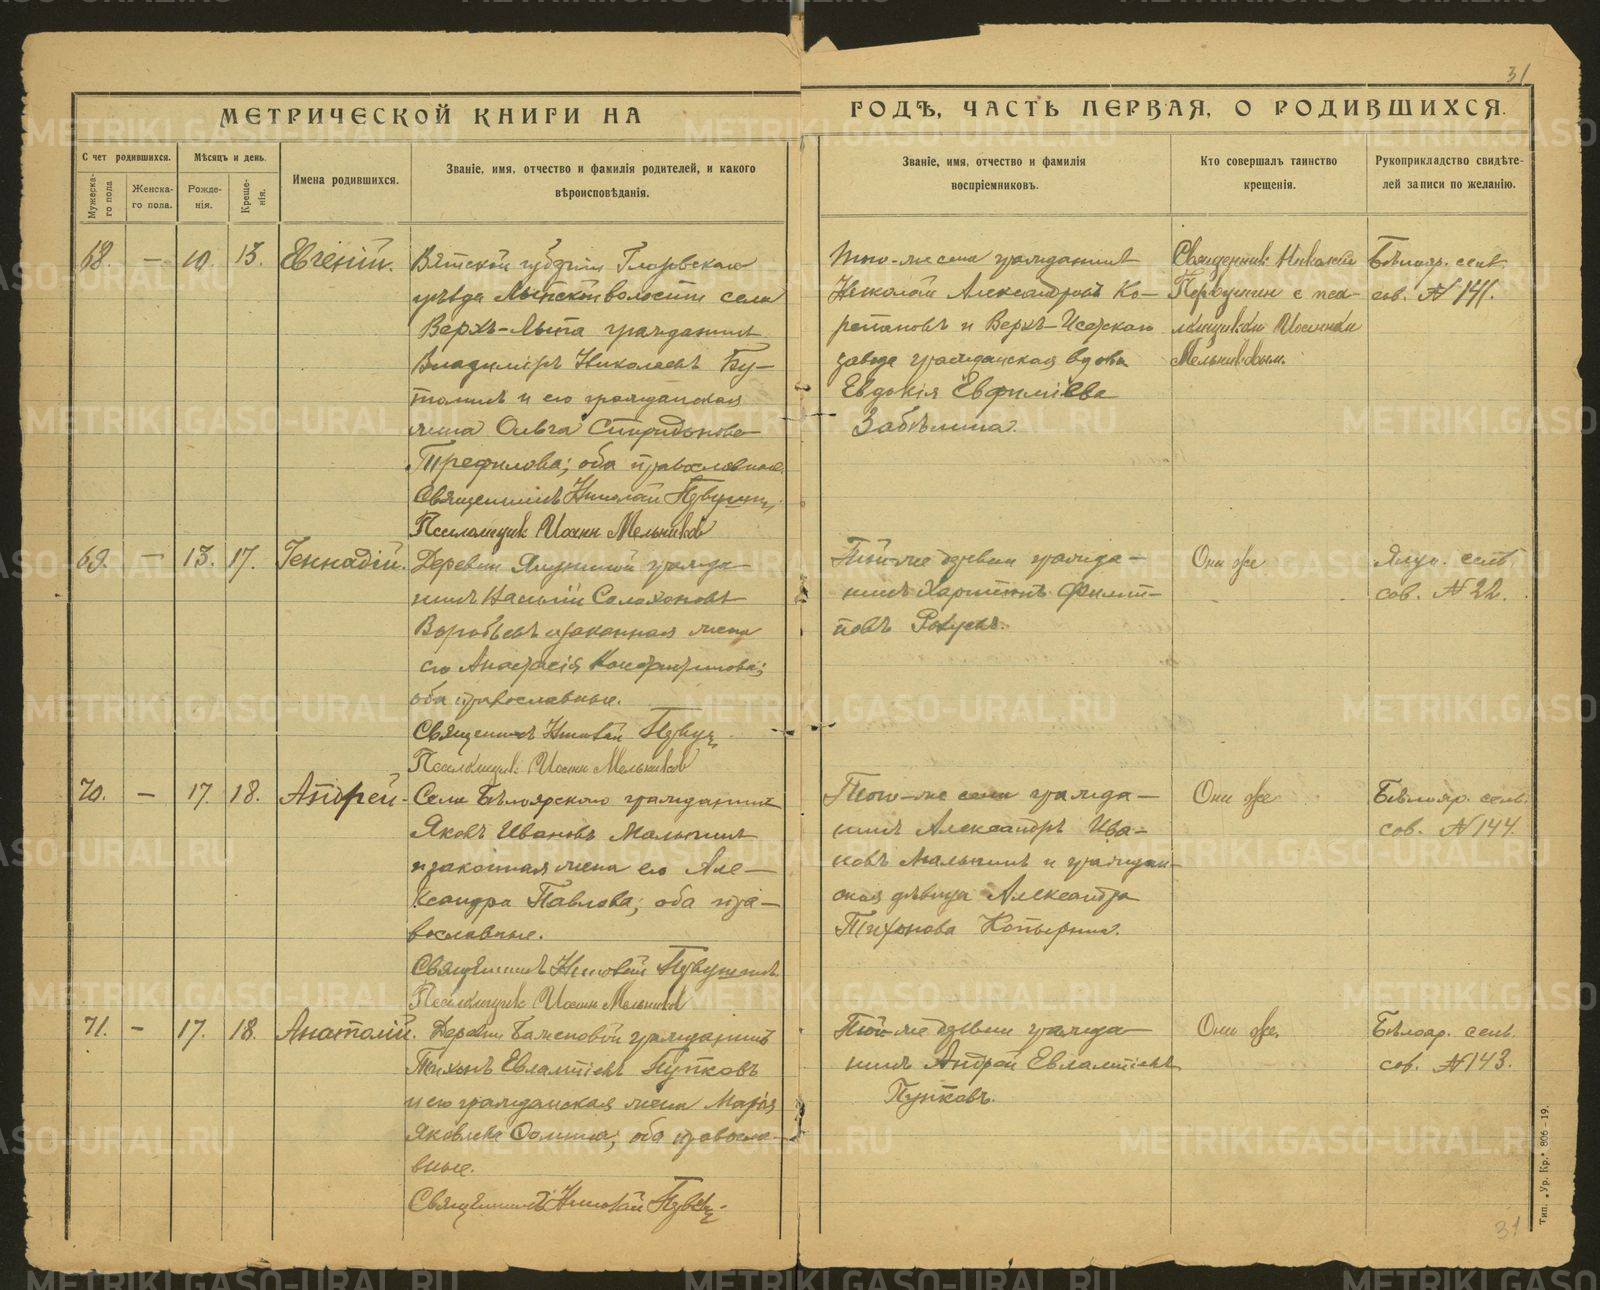 31
МЕТРИЧЕСКОЙ КНИГИ НА
ГОДЪ, ЧАСТЬ ПЕРВАЯ, О РОДИВШИХСЯ.
Счет родившихся.
Мужеска-го пола
Женска-го пола.
Мѣсяцъ и день.
Рожде-нія.
Креще-нія.
Имена родившихся.
Званіе, имя, отчество и фамилія родителей, и какого
вѣроисповѣданія.
Званіе, имя, отчество и фамилія
воспріемниковъ.
Кто совершалъ таинство
крещенія.
Рукоприкладство свидѣте-
лей записи по желанію.
68. — 10. 13. Евгеній.
Вятской губерніи Глазовскаго
уѣзда волости села
Верхъ- гражданинъ
Владиміръ Николаевъ Бу-
и его гражданская
жена Ольга Спиридонова
Трефилова; оба православные.
Священникъ Николай
Псаломщик Иоанн Мельников
Того-же села гражданинъ
Николай Александровъ Ко-
репановъ и Верхъ-Исетскаго
завода гражданская вдова
Евдокія Евфиміева
Забѣлина.
Священник Николай
Первушин с псал-
мщиком Иоанном
Мельниковым.
Бѣлояр. сельс.
сов. № 141.
69. — 13. 17. Геннадій.
Деревни гражда-
нинъ
Воробьевъ и законная жена
его Анастасія Константинова;
оба православные.
Священникъ Николай
Псаломщик Иоанн Мельников
Той-же деревни гражда-
нинъ Харитонъ Филип-
повъ
Они же
сельс.
сов. № 22.
70. — 17. 18. Андрей.
Села Бѣлоярского гражданинъ
Яковъ Ивановъ Мальгинъ
и законная жена его Але-
ксандра Павлова; оба пра-
вославные.
Священникъ Николай Первушинъ
Псаломщик Иоанн Мельников
Того-же села гражда-
нинъ Александръ Ива-
новъ Мальгинъ и граждан-
ская дѣвица Александра
Тихонова
Они же
Бѣлояр. сельс.
сов. № 144.
71. — 17. 18. Анатолій.
Деревни Баженовой гражданинъ
Тихонъ Евлампіевъ Пупковъ
и его гражданская жена Марія
Яковлева Сомина; оба правосла-
вные.
Священникъ Николай
Той-же деревни гражда-
нинъ Андрей Евлампіевъ
Пупковъ.
Они же.
Бѣлояр. сельс.
сов. № 143.
Тип. „Ур. Кр.“ 806-19.
31
METRIKI.GASO-URAL.RU